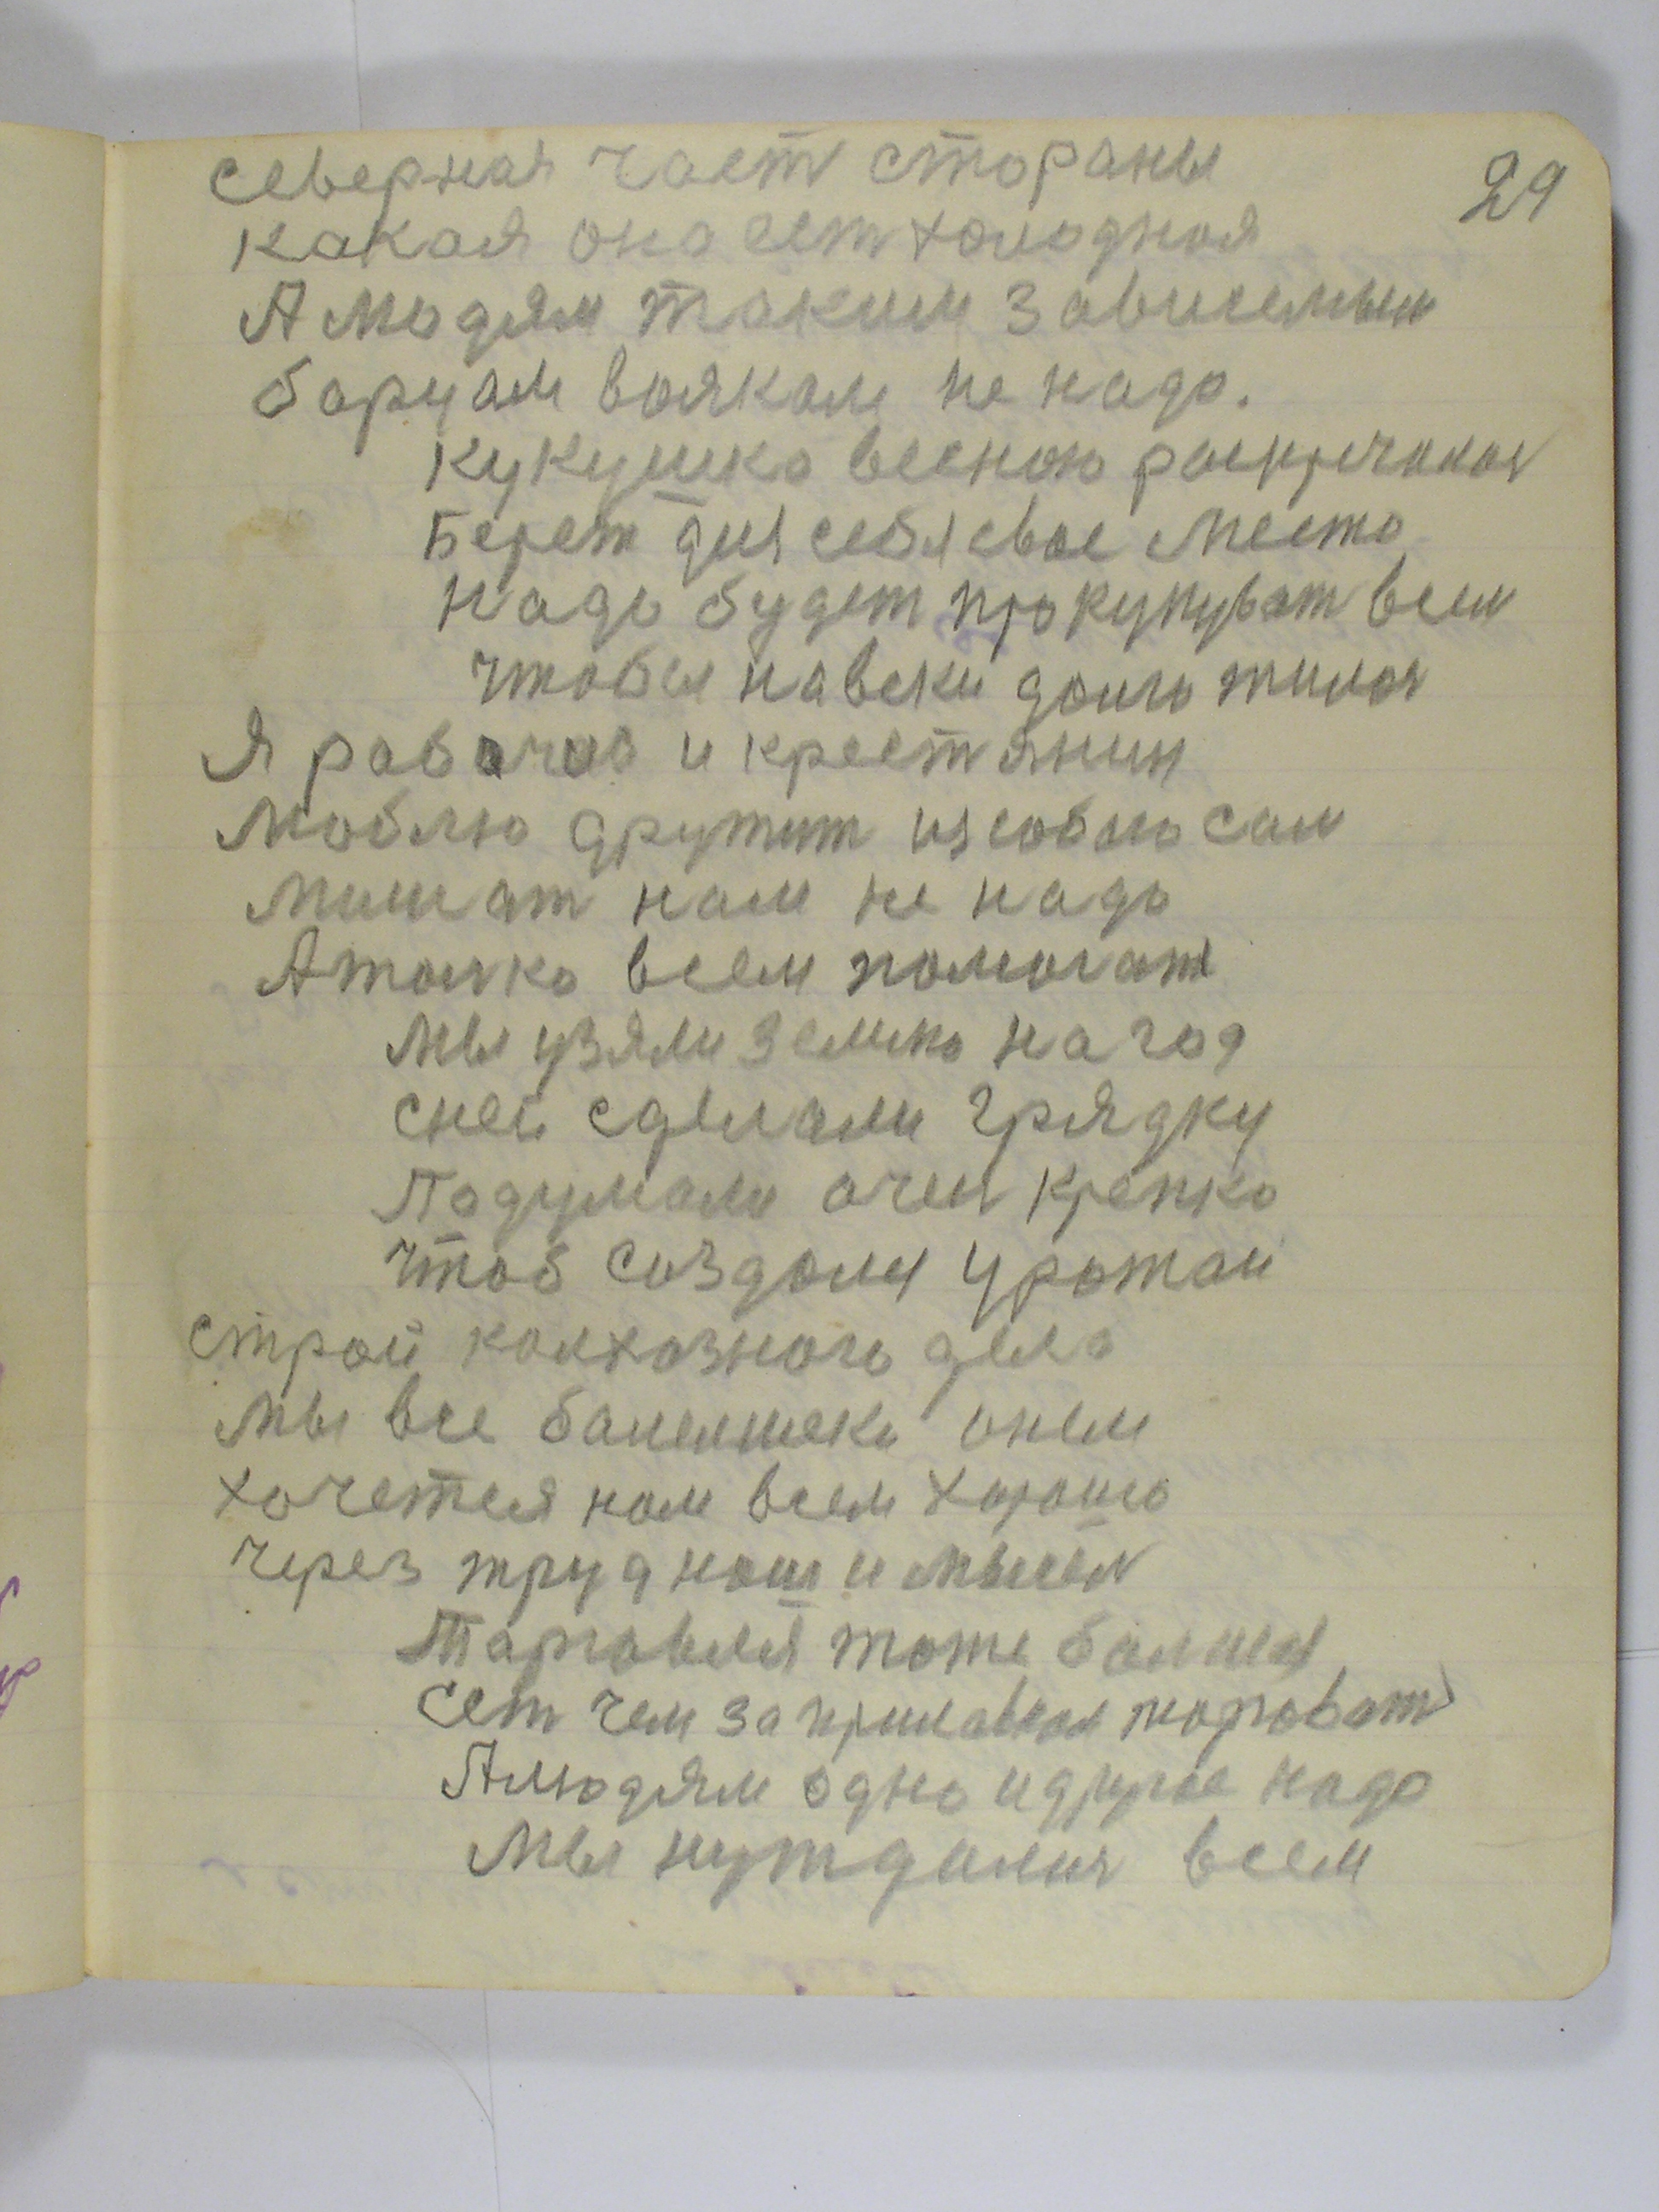 29
северная част стораны
какая она ест холодная
А людям таким зависемым
барцам воякам не надо.
кукушка весною раскричалас
Берет для себя свое место
надо будет прокупуват всем
чтобы навеки долго жилос
Я рабочоо и крестянин
люблю дружит и собою сам
мишат нам не надо
А толко всем помогат
мы узяли землю на год
с ней сделали грядку
Подумали очен крепко
чтоб создался урожай
строй колхозного дела
мы все болелшеки в нем
хочется нам всем хорошо
через труд наш и мысел
Тарговля тоже балшая
сет чем за прилавкам торговат
А людям одно и другое надо
мы нуждалис всем